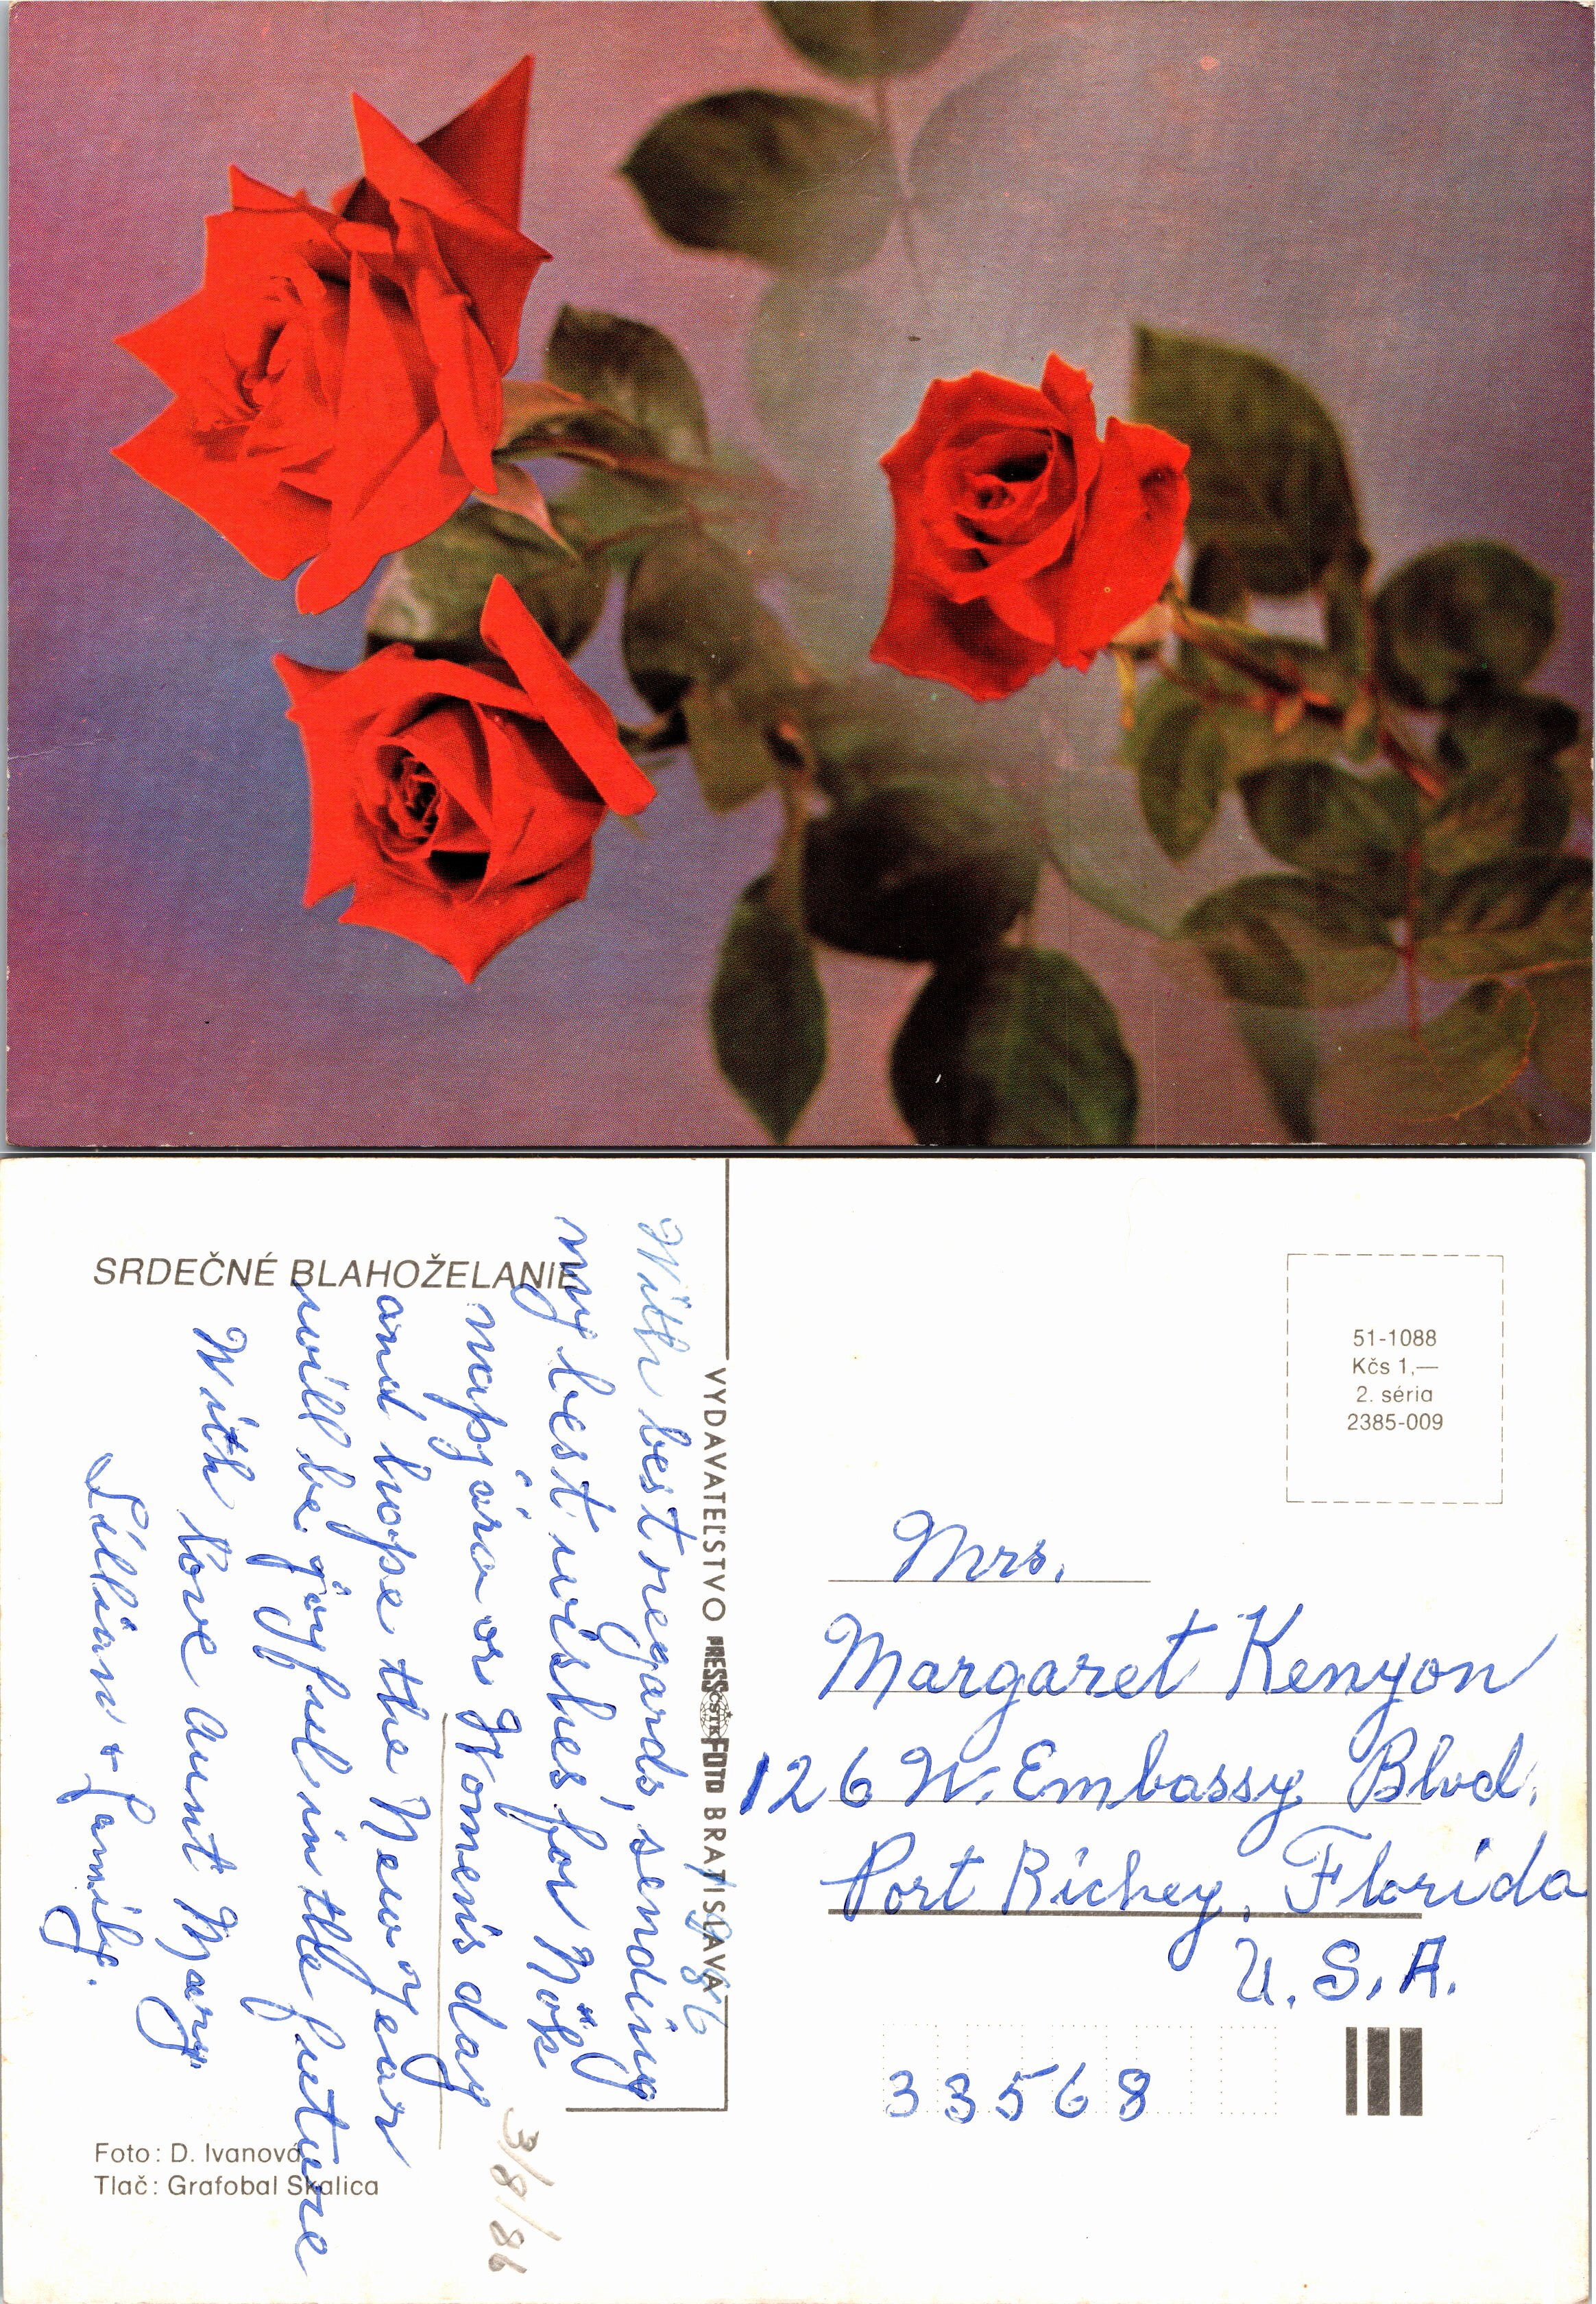 SRDEČNÉ BLAHOŽELANIE
1986
With best regards, sending
my best wishes for Nők
napjára or Women's day
and hope the New year
will be joyful in the future
With love Aunt Mary
Lillian + family.
3/8/86
Foto: D. Ivanová
Tlač: Grafobal Skalica
VYDAVATEĽSTVO PRESSFOTO BRATISLAVA
ČSTK
51-1088
Kčs 1,—
2. séria
2385-009
Mrs.
Margaret Kenyon
126 W. Embassy Blvd.
Port Richey, Florida
U. S. A.
33568